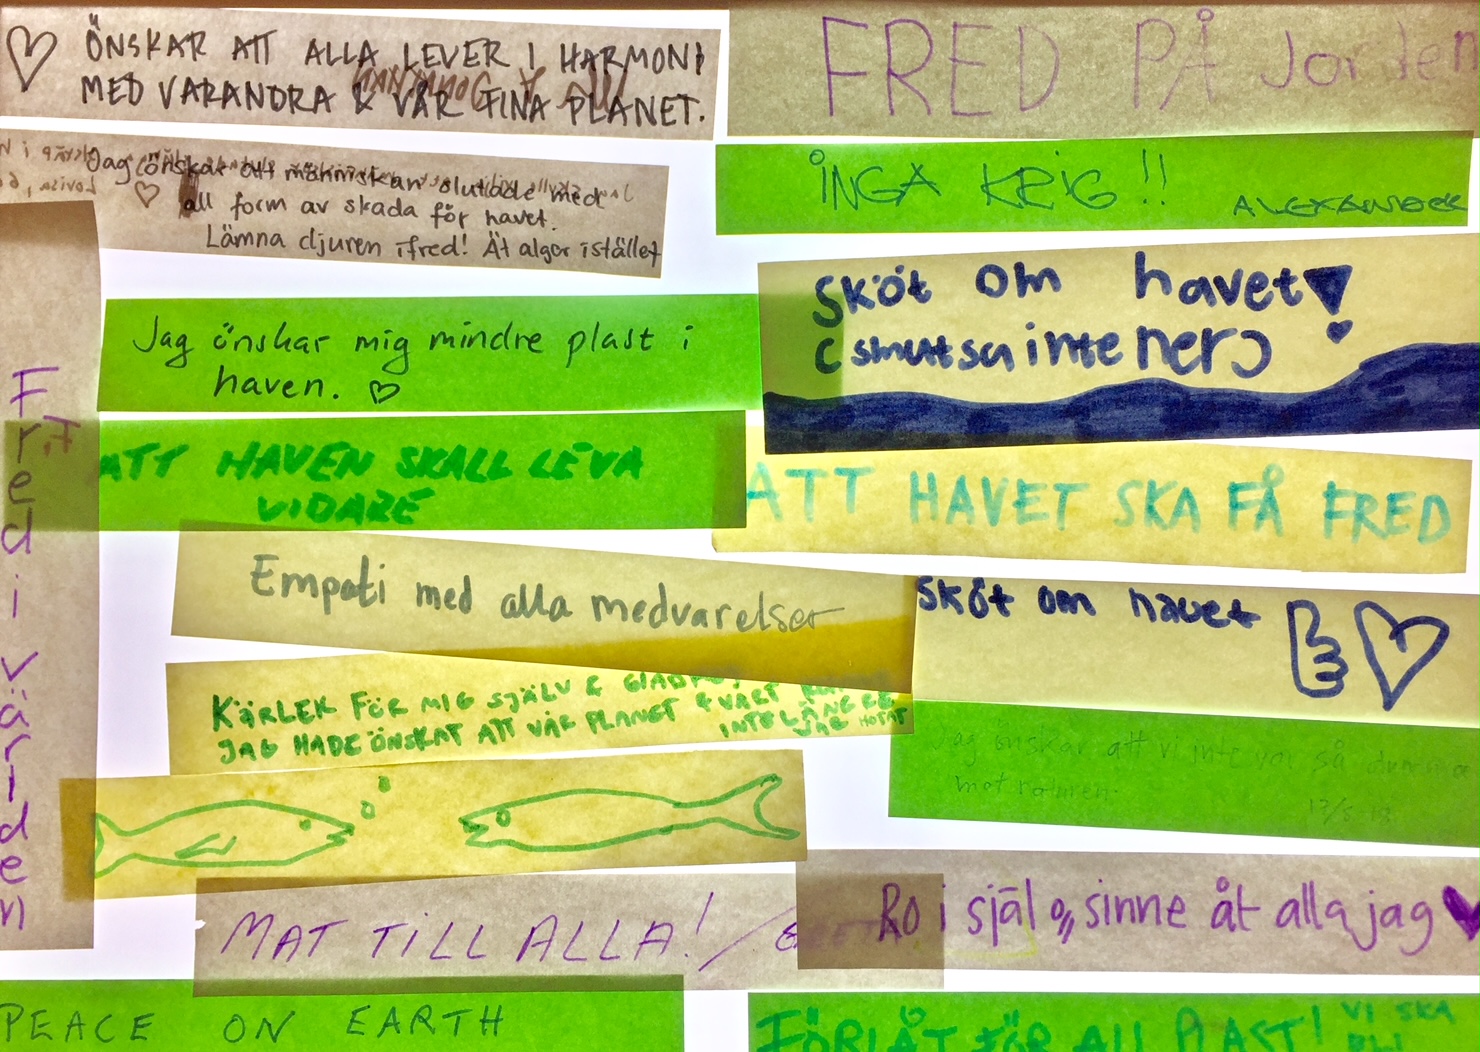 ÖNSKAR ATT ALLA LEVER I HARMONI
MED VARANDRA & VÅR FINA PLANET.
FRED PÅ Jorden
Jag önskar att människan slutade med
all form av skada för havet.
Lämna djuren ifred! Ät alger istället
INGA KRIG!!
ALEXANDER
Sköt om havet!
(smutsa inte ner)
Jag önskar mig mindre plast i
haven.
Fred i världen
ATT HAVEN SKALL LEVA
VIDARE
ATT HAVET SKA FÅ FRED
Empati med alla medvarelser
Sköt om havet
KÄRLEK FÖR MIG SJÄLV &
JAG HADE ÖNSKAT ATT VÅR PLANET & VÅRT
INTE LÄNGRE
VAR HOTAT
Jag önskar att vi inte var så dumma
mot
MAT TILL ALLA!
Ro i själ o sinne åt alla jag
PEACE ON EARTH
FÖRLÅT FÖR ALL PLAST! VI SKA